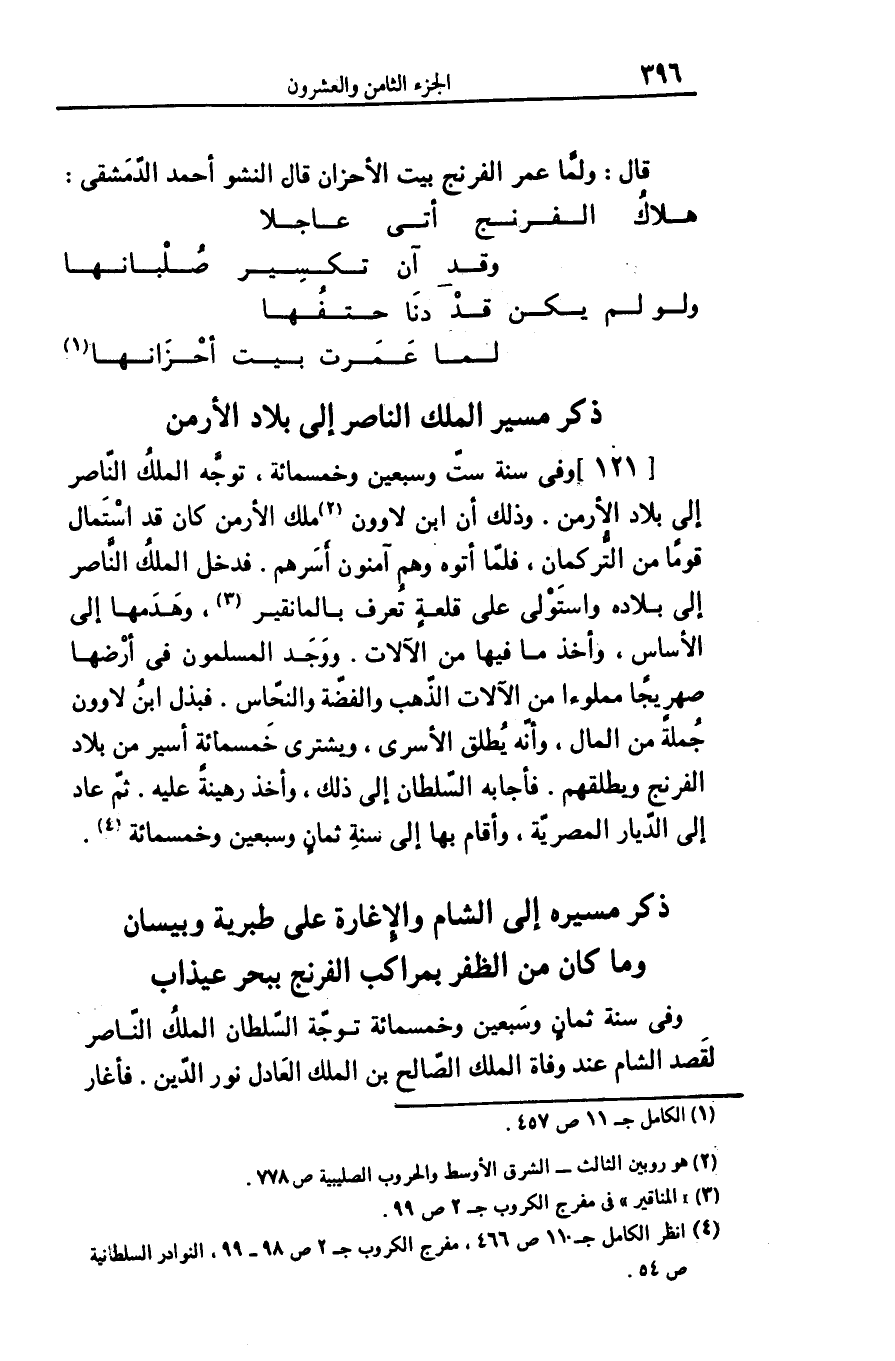 ٣٩٦
الجزء الثامن والعشرون
قال : ولمَّا عمر الفرنج بيت الأحزان قال النشو أحمد الدّمَشقى :
هـلاكُ الـفـرنـج أتـى عـاجـلا
وقـد آن تـكـسِـيـر صُـلْبـانـهـا
ولـو لـم يـكـن قـدْ دنَا حـتـفُـهـا
لـمـا عَـمَـرت بـيـت أحْـزَانـهـا(١)
ذكر مسير الملك الناصر إلى بلاد الأرمن
[ ١٢١ ]وفى سنة ستّ وسبعين وخمسمائة ، توجَّه الملكُ النّاصر
إلى بلاد الأرمن . وذلك أن ابن لاوون (٢)ملك الأرمن كان قد اسْتَمال
قومًا من التُّركمان ، فلمّا أتوه وهم آمنون أَسَرهم . فدخل الملكُ النَّاصر
إلى بـلاده واستَوْلى على قلعةٍ تُعرف بـالمانقيـر (٣) ، وهَـدَمهـا إلى
الأساس ، وأخذ مـا فيها من الآلات . ووَجَـد المسلمون فى أرْضهـا
صهريجًا مملوءا من الآلات الذّهب والفضّة والنحّاس . فبذل ابنُ لاوون
جُملةً من المال ، وأنّه يُطلق الأسرى ، ويشترى خَمسمائة أسير من بلاد
الفرنج ويطلقهم . فأجابه السّلطان إلى ذلك ، وأخذ رهينةً عليه . ثمّ عاد
إلى الدّيار المصريّة ، وأقام بها إلى سنةِ ثمانٍ وسبعين وخمسمائة (٤) .
ذكر مسيره إلى الشام والإغارة على طبرية وبيسان
وما كان من الظفر بمراكب الفرنج ببحر عيذاب
وفى سنة ثمانٍ وسَبعين وخمسمائة تـوجّة السّلطان الملكُ النّـاصر
لقَصد الشام عند وفاة الملك الصّالح بن الملك العَادل نور الدّين . فأغار
(١) الكامل جـ ١١ ص ٤٥٧ .
(٢) هو روبين الثالث ــ الشرق الأوسط والحروب الصليبية ص ٧٧٨ .
(٣) « المناقير » فى مفرج الكروب جـ ٢ ص ٩٩ .
(٤) انظر الكامل جـ ١١ ص ٤٦٦ ، مفرج الكروب جـ ٢ ص ٩٨ ـ ٩٩ ، النوادر السلطانية
ص ٥٤ .